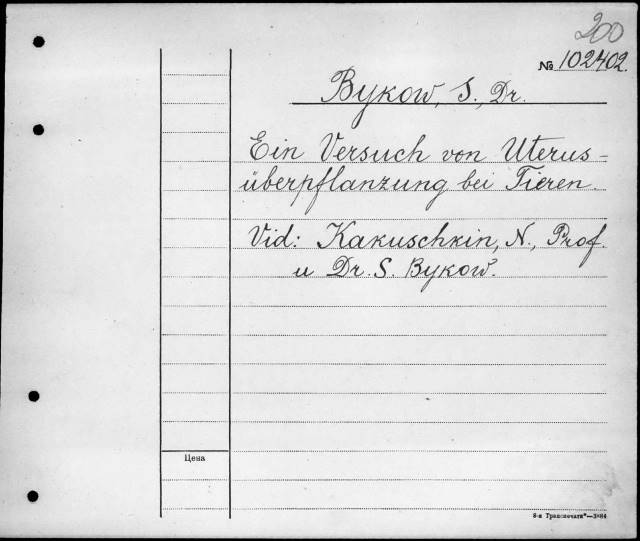 200
№ 102402.
Bykow, S., Dr.
Ein Versuch von Uterus-
überpflanzung bei Tieren.
Vid: Kakuschkin, N., Prof.
u Dr. S. Bykow.
Цена
8-я Транспечати"—3984